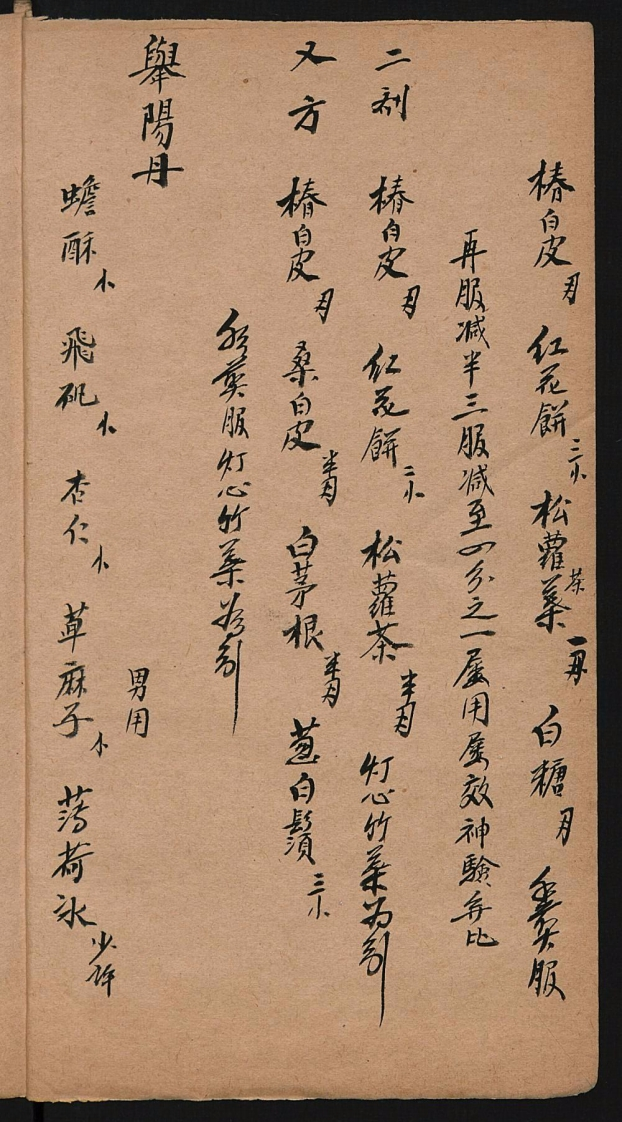 椿白皮 紅花餅 三小 松蘿葉 茶 一 白糖 服
再服减半三服减至四分之一屡用屡效神驗無比
二剤 椿白皮 紅花餅 二小 松蘿茶 半 灯心竹葉为引
又方 椿白皮 桑白皮 半 白茅根 半 葱白鬚 三小
煎服灯心竹葉为引
舉陽丹 男用
蟾酥 小 飛矾 小 杏仁 小 草麻子 小 薄荷冰 少許